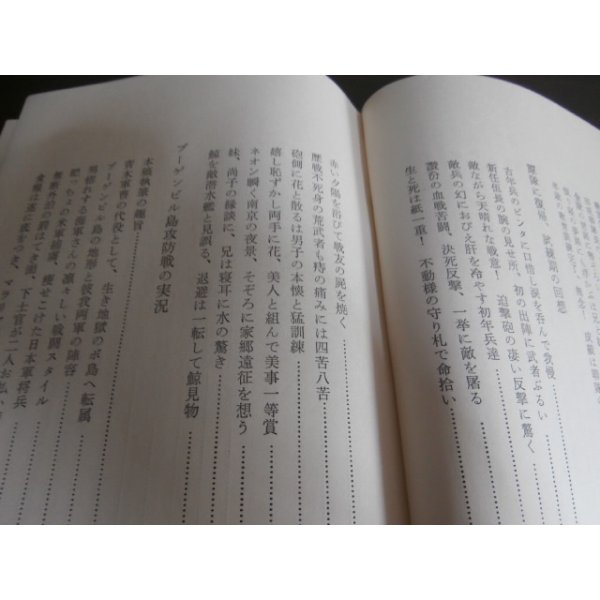 原隊へ復帰、試練期の回想
古年兵のビンタに口惜し涙を呑んで我慢
新任伍長の腕の見せ所、初の出陣に武者ぶるい
敵ながら天晴れな戦意! 追撃砲の凄い反撃に驚く
敵兵の幻におびえ肝を冷やす初年兵達
讃岔の血戦苦闘、決死反撃、一挙に敵を屠る
生と死は紙一重! 不動様の守り札で命拾い
赤い夕陽を浴びて戦友の屍を焼く
歴戦不死身の荒武者も痔の痛みには四苦八苦
砲側に花と散るは男子の本懐と猛訓練
嬉し恥ずかし両手に花、美人と組んで美事一等賞
ネオン瞬く南京の夜景、そぞろに家郷遠征を想う
妹、尚子の縁談に、兄は寝耳に水の驚き
鯨を敵潜水艦と見誤る、退避は一転して鯨見物
ブーゲンビル島攻防戦の実況
本稿執筆の趣旨
青木軍曹の代役として、生き地獄のボ島へ転属
ブーゲンビル島の地形と彼我両軍の陣容
男惚れする海軍さんの凛々しい戦闘スタイル
肥っちょの米軍捕虜、痩せこけた日本軍将兵